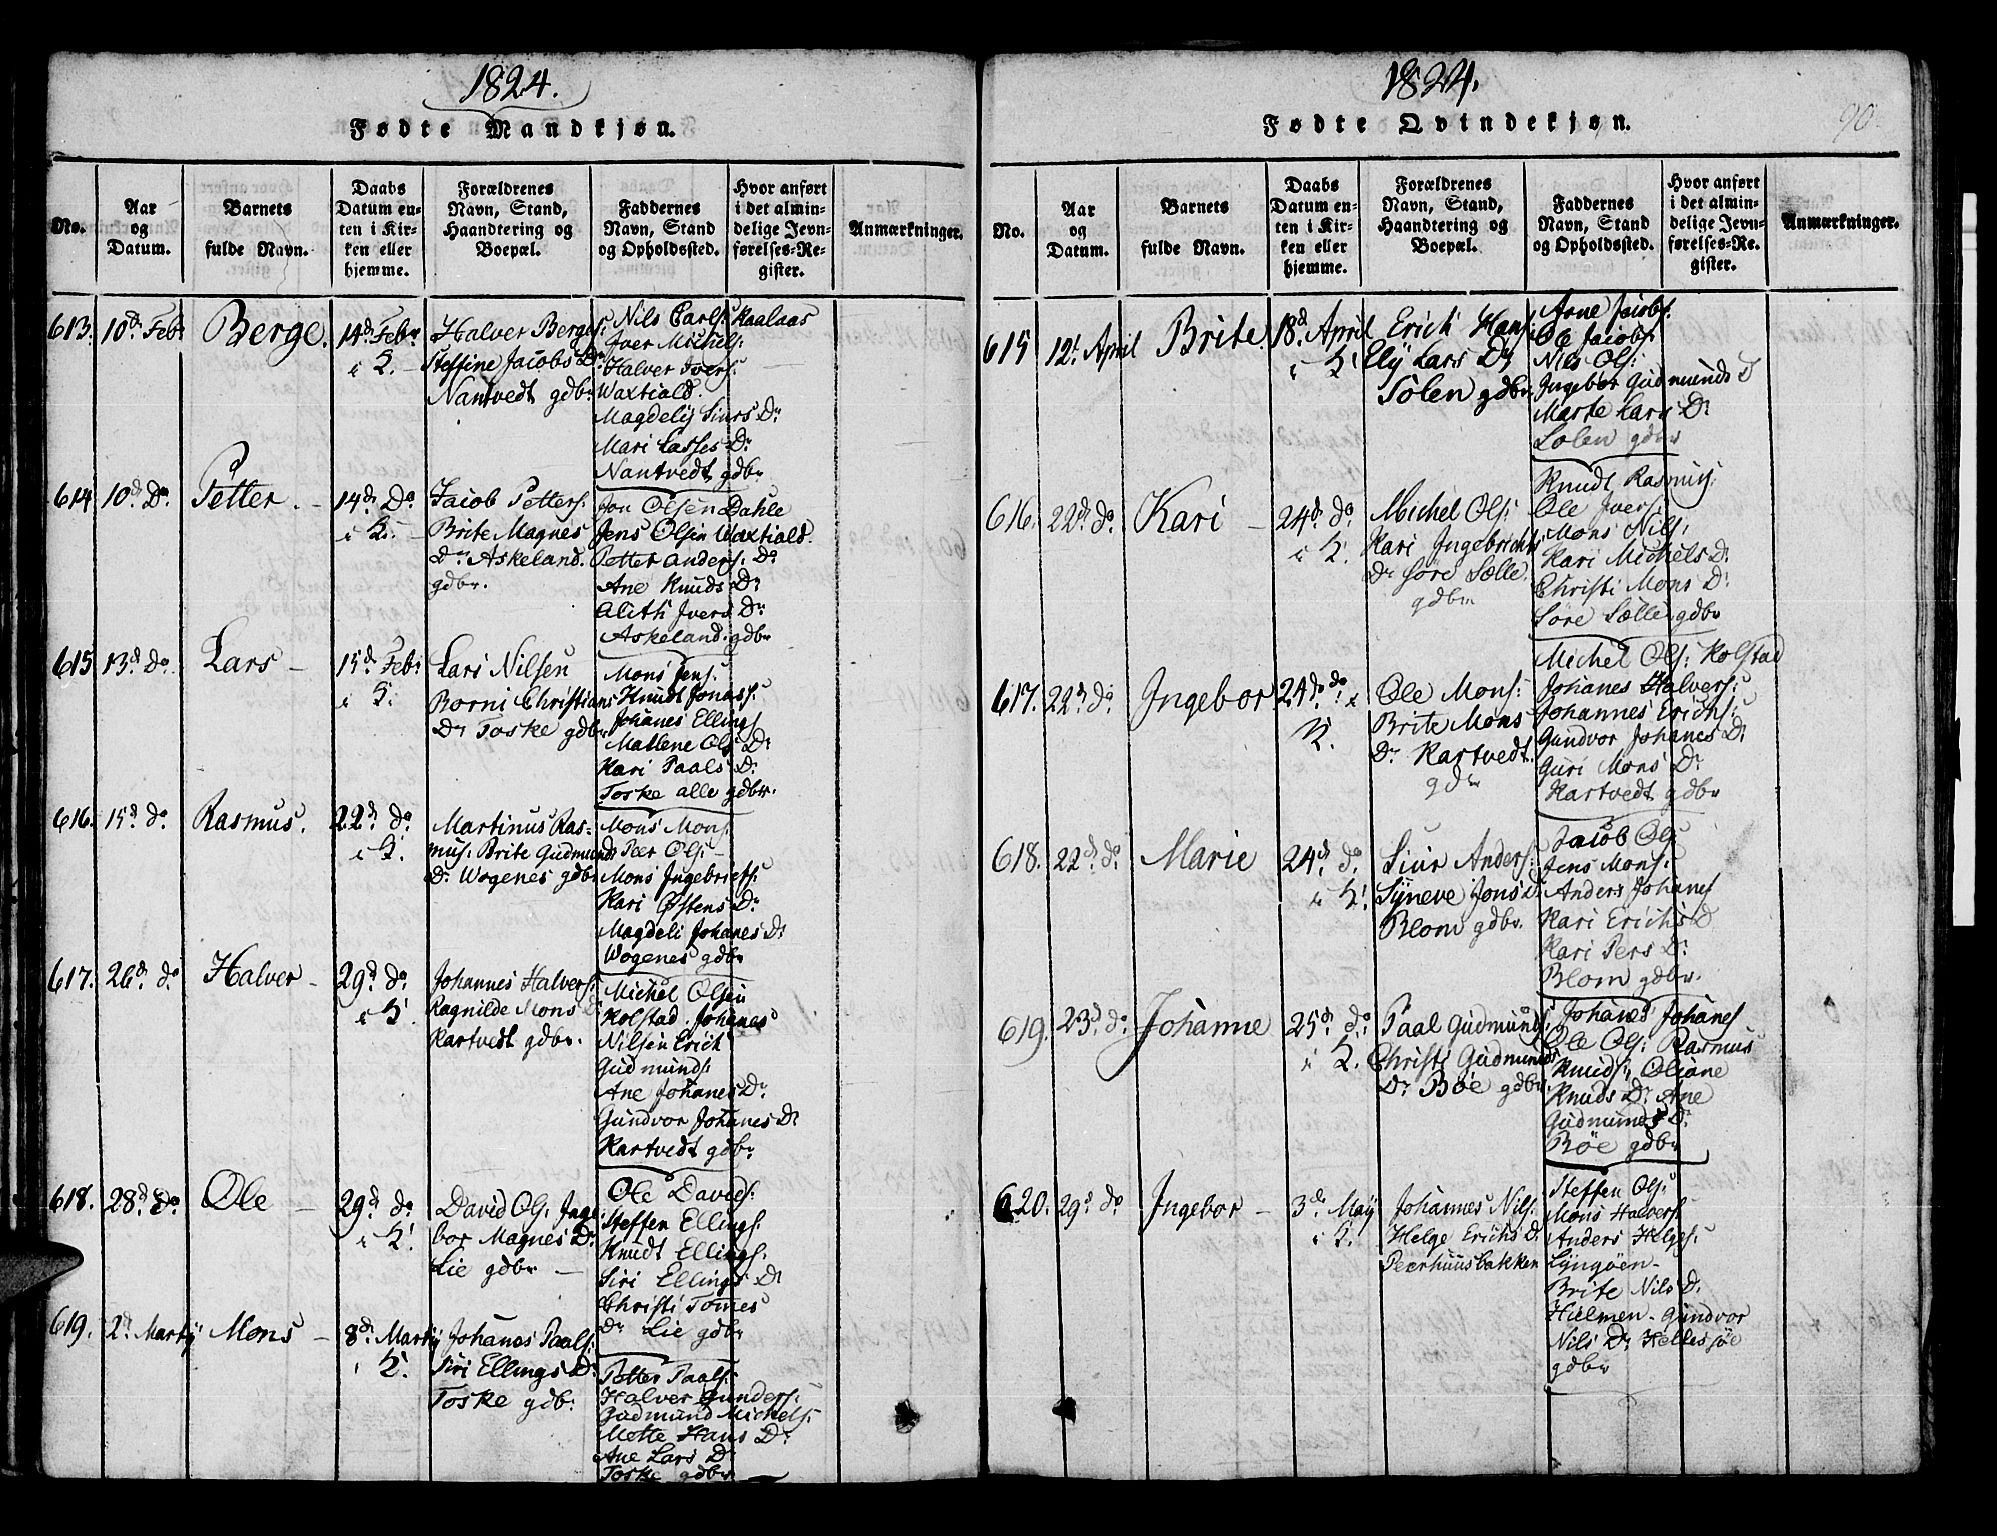 1824.
Fødte Mandkjøn.
No.
Aar
og
Datum.
Barnets
fulde Navn.
Daabs
Datum en-
ten i Kir-
ken eller
hjemme.
Forældrenes
Navn, Stand,
Haandtering og
Boepæl.
Faddernes
Navn, Stand
og Opholdssted.
Hvor anført
i det almin-
delige Jevn-
førelses-Re-
gister.
Anmærkninger.
613. 10d Febr Berge. 14d Febr
i K.
Halver Bergesː
Steffine Jacobs Dr
Nantvedt gdbr
Nils Carlsː Kaalaas
Iver Michelsː
Halver Iversː
Waxtiald.
Magdely Siurs Dr
Mari Lasses Dr
Nantvedt gdbr
614 10d Do Petter. 14d Do
i K.
Jacob Pettersː
Brite Magnes
Dr Askeland.
gdbr.
Jon Olsen Dahle
Jens Olsen Waxtiald.
Petter Andersː Do
Ane Knuds Dr
Alith Ivers Dr
Askeland gdbr
615 13d Do Lars 15d Febr
i K.
Lars Nilsen
Borni Christians
Dr Toske gdbr
Mons Jensː
Knudt Jonasː
Johanes Ellings
Mallene Ols Dr
Kari Paals Dr
Toske alle gdbr.
616. 15d do Rasmus. 22d do
i K.
Martinus Ras-
musː Brite Gudmunds
Dr Wogenes gdbr
Mons Monsː
Peer Olsː
Mons Ingebrictsː
Kari Østens Dr
Magdeli Johanes Dr
Wogenes gdbr
617. 26d do Halver 29d do
i K.
Johannes Halversː
Ragnilde Mons Dr
Kartvedt gdbr.
Michel Olsen
Kolstad. Johanes
Nilsen Erich
Gudmundsː
Ane Johanes Dr
Gundvor Johanes Dr
Kartvedt gdbr
618. 28d do Ole 29d do
i K.
David Olsː Inge
bor Magnes Dr
Lie gdbr
Ole Davidsː
Steffen Ellingsː
Knudt Ellingsː
Siri Ellings Dr
Christi Tomes
Dr Lie gdbr
619. 2d Martÿ Mons 8d Martÿ
i K.
Johanes Paalsː
Siri Ellings Dr
Toske gdbr
Petter Paalsː
Halver Gundersː
Gudmund Michelsː
Mette Hans Dr
Ane Lars Dr
Toske gdbr
1824.
Fødte Qvindekjøn.
90
No.
Aar
og
Datum.
Barnets
fulde Navn.
Daabs
Datum en-
ten i Kir-
ken eller
hjemme.
Forældrenes
Navn, Stand,
Haandtering og
Boepæl.
Faddernes
Navn, Stand
og Opholdssted.
Hvor anført
i det almin-
delige Jevn-
førelses-Re-
gister.
Anmærkninger.
615 12t April Brite 18d April
i K.
Erich Hansː
Ely Lars Dr
Solen gdbr
Arne Jacobsː
Ole Jacobsː
Nils Olsː
Ingebor Gudmunds D
Marte Lars Dr
Solen gdbr
616. 22d do Kari 24d do
i K.
Michel Olsː
Kari Ingebrichts
Dr Søre Sælle
gdbr
Knudt Rasmusː
Ole Iversː
Mons Nilsː
Kari Michels Dr
Christi Mons Dr
Søre Sælle gdbr
617. 22d do Ingebor 24d do i
K.
Ole Monsː
Brite Mons
Dr Kartvedt
gdr
Michel Olsː Kolstad
Johanes Halversː
Johannes Erichsː
Gundvor Johanes Dr
Guri Mons Dr
Kartvedt gdbr
618. 22d do Marie 24d do
i K.
Siur Andersː
Syneve Jons Dr
Blom gdbr.
Jacob Olsː
Jens Monsː
Anders Johanes
Kari Erichs D
Kari Pers Dr
Blom gdbr.
619. 23d do Johanne 25d do
i K.
Paal Gudmundsː
Christi Gudmunds
Dr Bøe gdbr.
Johanes Johanes
Ole Olsː Rasmus
Knudsː Oliane
Knuds Dr Ane
Gudmunds Dr
Bøe gdbr
620. 29d do Ingebor 3d Maÿ
i K.
Johannes Nilsː
Helge Erichs D.
Peerhuusbakken
Steffen Olsː
Mons Halversː
Anders Helgesː
Lyngøen
Brite Nils D.
Hielmen Gundvor
Nils Dr Hellesøe
gdbr